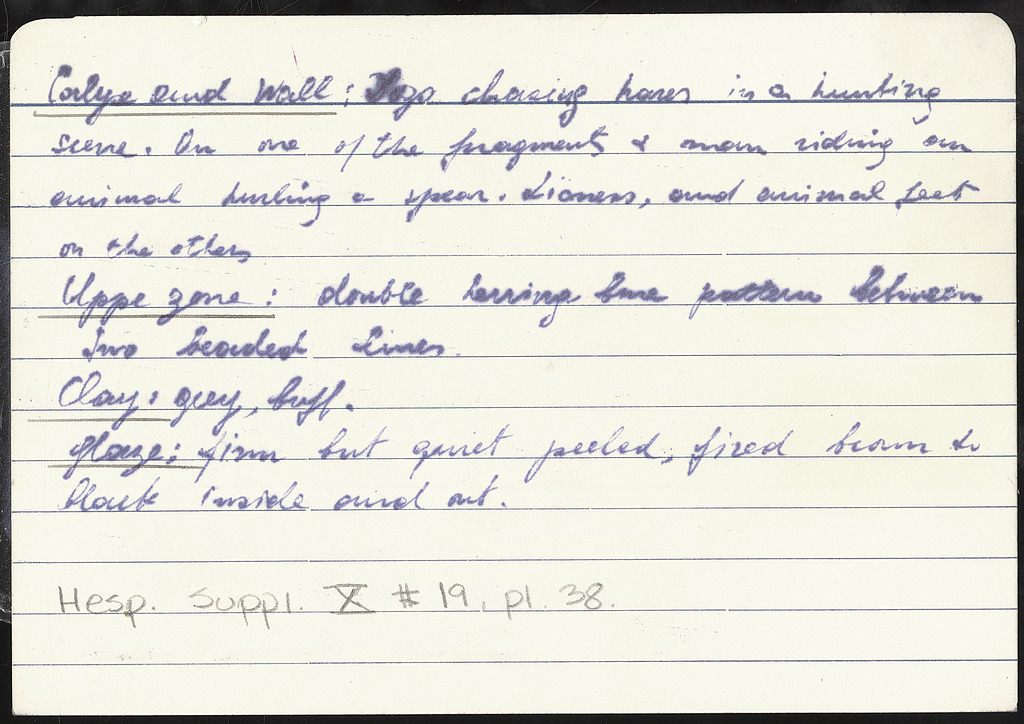 Calyx and Wall: Dogs chasing hares in a hunting
scene. On one of the fragments a man riding an
animal hurling a spear. Lioness, and animal feet
on the others
Uppe zone: double herring bone pattern between
two beaded lines.
Clay: grey, buff.
glaze: firm but quiet peeled, fired brown to
black inside and out.
Hesp. Suppl. X # 19, pl. 38.